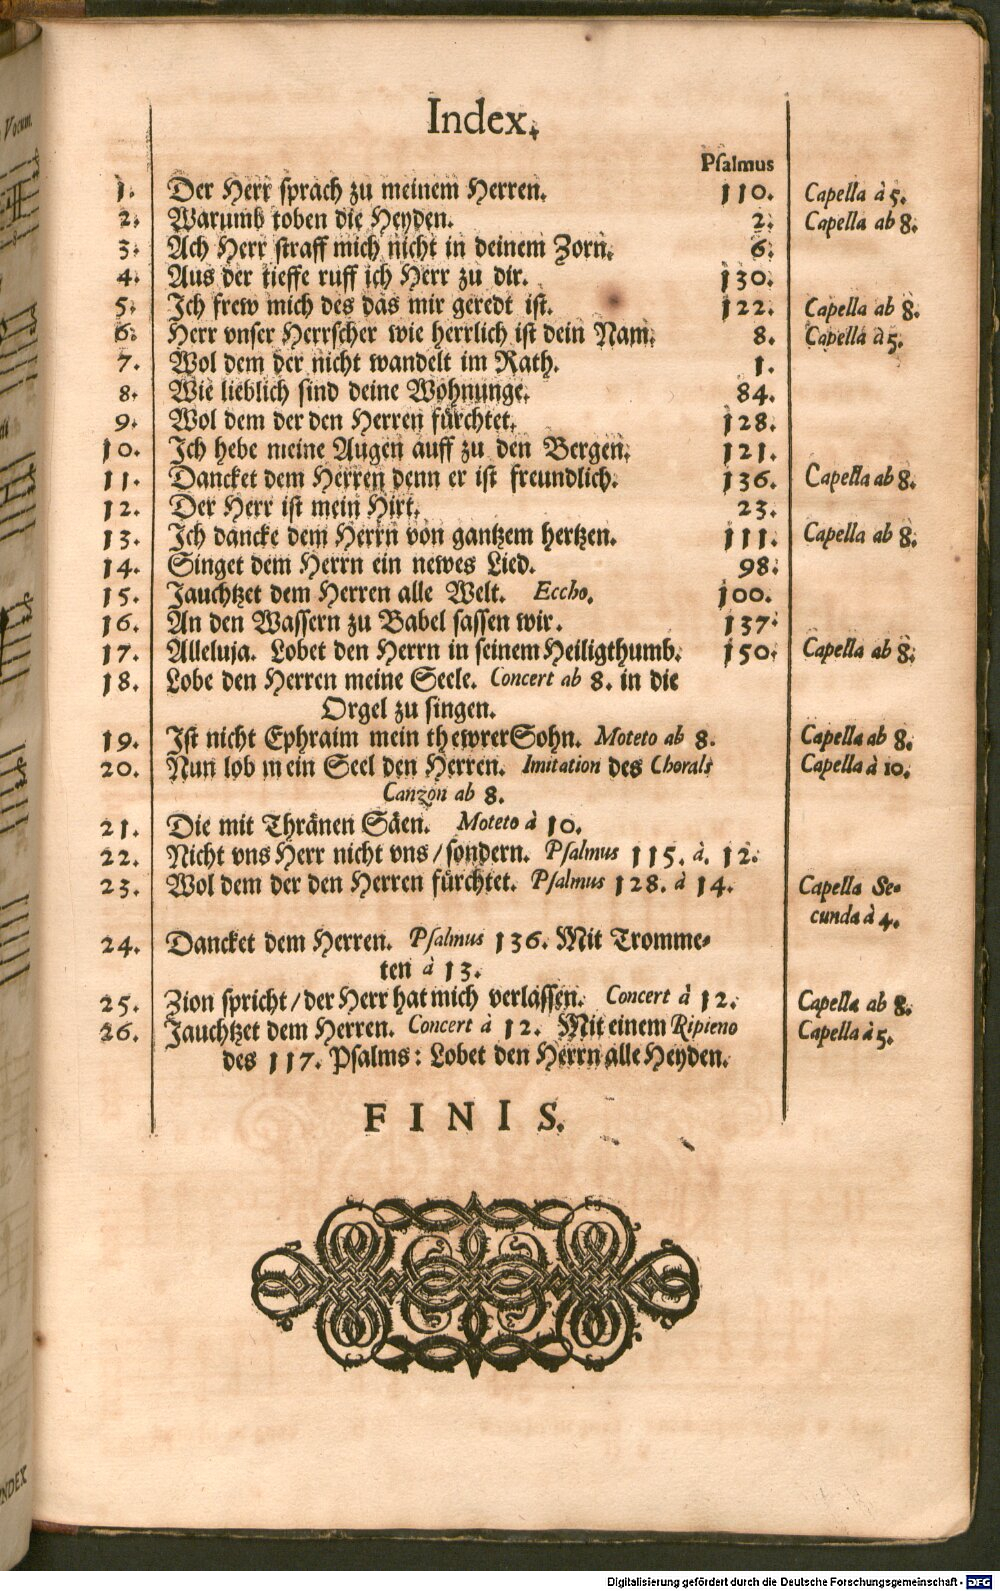 Vocum.
Index.
Psalmus
1. Der Herr sprach zu meinem Herren. 110. Capella à 5.
2. Warumb toben die Heyden. 2. Capella ab 8.
3. Ach Herr straff mich nicht in deinem Zorn. 6.
4. Aus der tieffe ruff ich Herr zu dir. 130.
5. Ich frew mich des das mir geredt ist. 122. Capella ab 8.
6. Herr vnser Herrscher wie herrlich ist dein Nam. 8. Capella à 5.
7. Wol dem der nicht wandelt im Rath. 1.
8. Wie lieblich sind deine Wohnunge. 84.
9. Wol dem der den Herren fürchtet. 128.
10. Ich hebe meine Augen auff zu den Bergen. 121.
11. Dancket dem Herren denn er ist freundlich. 136. Capella ab 8.
12. Der Herr ist mein Hirt. 23.
13. Ich dancke dem Herrn von gantzem hertzen. 111. Capella ab 8.
14. Singet dem Herrn ein newes Lied. 98.
15. Jauchtzet dem Herren alle Welt. Eccho. 100.
16. An den Wassern zu Babel sassen wir. 137.
17. Alleluja. Lobet den Herrn in seinem Heiligthumb. 150. Capella ab 8.
18. Lobe den Herren meine Seele. Concert ab 8. in die
Orgel zu singen.
19. Ist nicht Ephraim mein thewrer Sohn. Moteto ab 8. Capella ab 8.
20. Nun lob mein Seel den Herren. Imitation des Chorals Capella à 10.
Canzon ab 8.
21. Die mit Thränen Säen. Moteto à 10.
22. Nicht vns Herr nicht vns / sondern. Psalmus 115. à. 12.
23. Wol dem der den Herren fürchtet. Psalmus 128. à 14. Capella Se-
cunda à 4.
24. Dancket dem Herren. Psalmus 136. Mit Tromme-
ten à 13.
25. Zion spricht / der Herr hat mich verlassen. Concert à 12. Capella ab 8.
26. Jauchtzet dem Herren. Concert à 12. Mit einem Ripieno Capella à 5.
des 117. Psalms: Lobet den Herrn alle Heyden.
FINIS.
INDEX
Digitalisierung gefördert durch die Deutsche Forschungsgemeinschaft - DFG